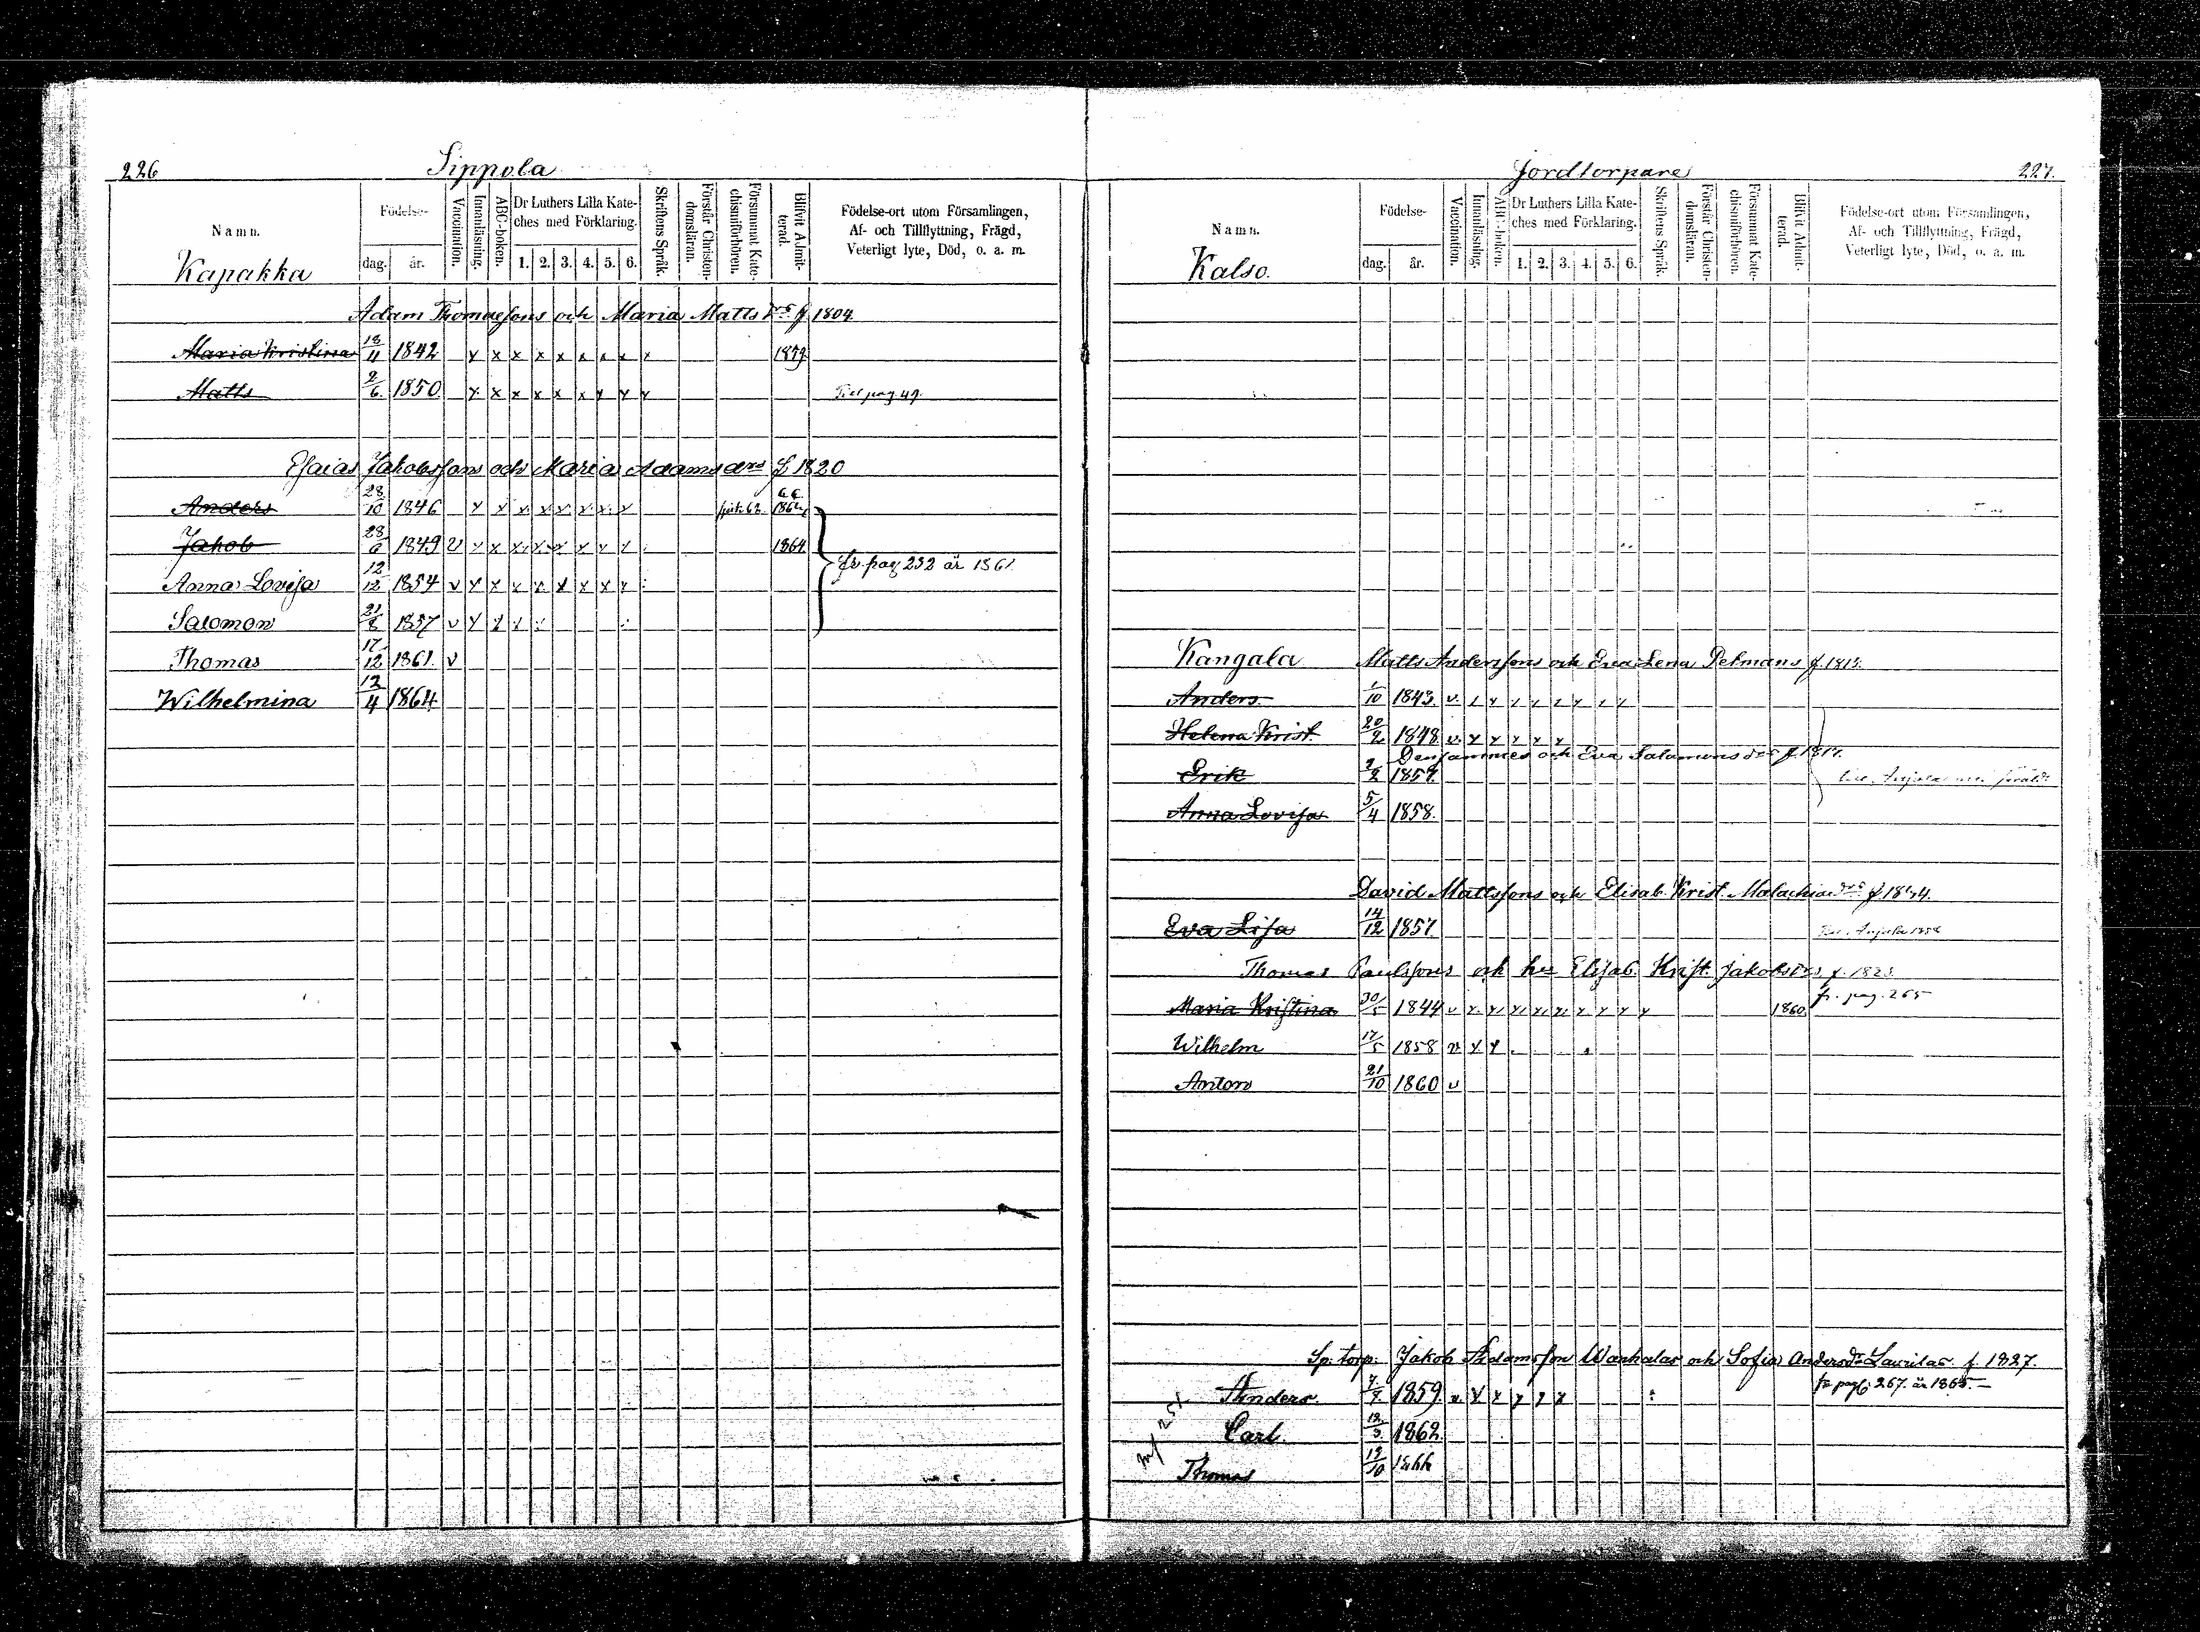 226
Sippola
Namn.
Födelse-
dag.
år.
Vaccination.
Innanläsning.
ABC-boken.
Dr Luthers Lilla Kate-
ches med Förklaring.
1. 2. 3. 4. 5. 6.
Skriftens Språk.
Förstår Christen-
domsläran.
Försummat Kate-
chismiförhören.
Blifvit Admit-
terad.
Födelse-ort utom Församlingen,
Af- och Tillflyttning, Frägd,
Veterligt lyte, Död, o. a. m.
Kapakka
Adam Thomassons och Maria Matts drs f 1804
Maria Kristina 18/4 1842 x x x x x x x x x 1859
Matts 2/6 1850 x x x x x x x x x Till pag 49.
Esaias Jakobssons och Maria Adams drs f 1820
Anders 28/10 1846 x x x x x x x x 1864
Jakob 28/6 1849 v x x x x x x x x 1864
fr. pag 232 år 1861.
Anna Lovisa 12/12 1854 v x x x x x x x x
Salomon 21/8 1857 v x x x
Thomas 17/12 1861 v
Wilhelmina 12/4 1864
Jordtorpare
227.
Namn.
Födelse-
dag.
år.
Vaccination.
Innanläsning.
ABC-boken.
Dr Luthers Lilla Kate-
ches med Förklaring.
1. 2. 3. 4. 5. 6.
Skriftens Språk.
Förstår Christen-
domsläran.
Försummat Kate-
chismiförhören.
Blifvit Admit-
terad.
Födelse-ort utom Församlingen,
Af- och Tillflyttning, Frägd,
Veterligt lyte, Död, o. a. m.
Kalso.
Kangala Matts Anderssons och Eva Lena Pelmans f. 1815.
Anders 1/10 1843. v. x x x x x x x x
Helena Krist. 20/2 1848 v. x x x x x
Densammes och Eva Salamons dr f. 1817.
Erik 2/2 1857.
Anna Lovisa 5/4 1858.
David Mattssons och Elisab. Krist. Malachiae drs f. 1834.
Eva Lisa 14/12 1857.
Thomas Paulssons och hu Elisab. Krist. Jakobs drs f. 1823.
fr. pag. 265
Maria Kristina 30/5 1844 v x x x x x x x x x 1860.
Wilhelm 17/5 1858 v x x
Anton 21/10 1860 v
Sp. torp. Jakob Adamsson Wanhalas och Sofia Andersdr Laurilas f. 1827.
fr pag: 267. år 1865.
Anders. 1859. v. x x x x x
Carl. 1862.
Thomas 12/10 1866